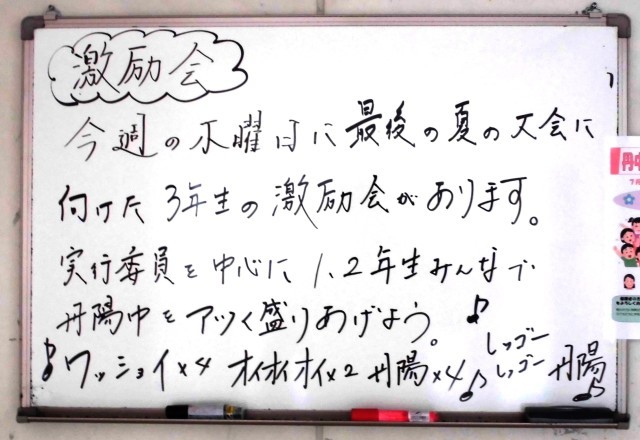 激励会
今週の水曜日に最後の夏の大会に
付けた3年生の激励会があります。
実行委員を中心に1.2年生みんなで
丹陽中をアツく盛りあげよう。♪
♪ワッショイ×4 オイオイオイ×2 丹陽×4♪ レッゴー レッゴー 丹陽♪
丹中